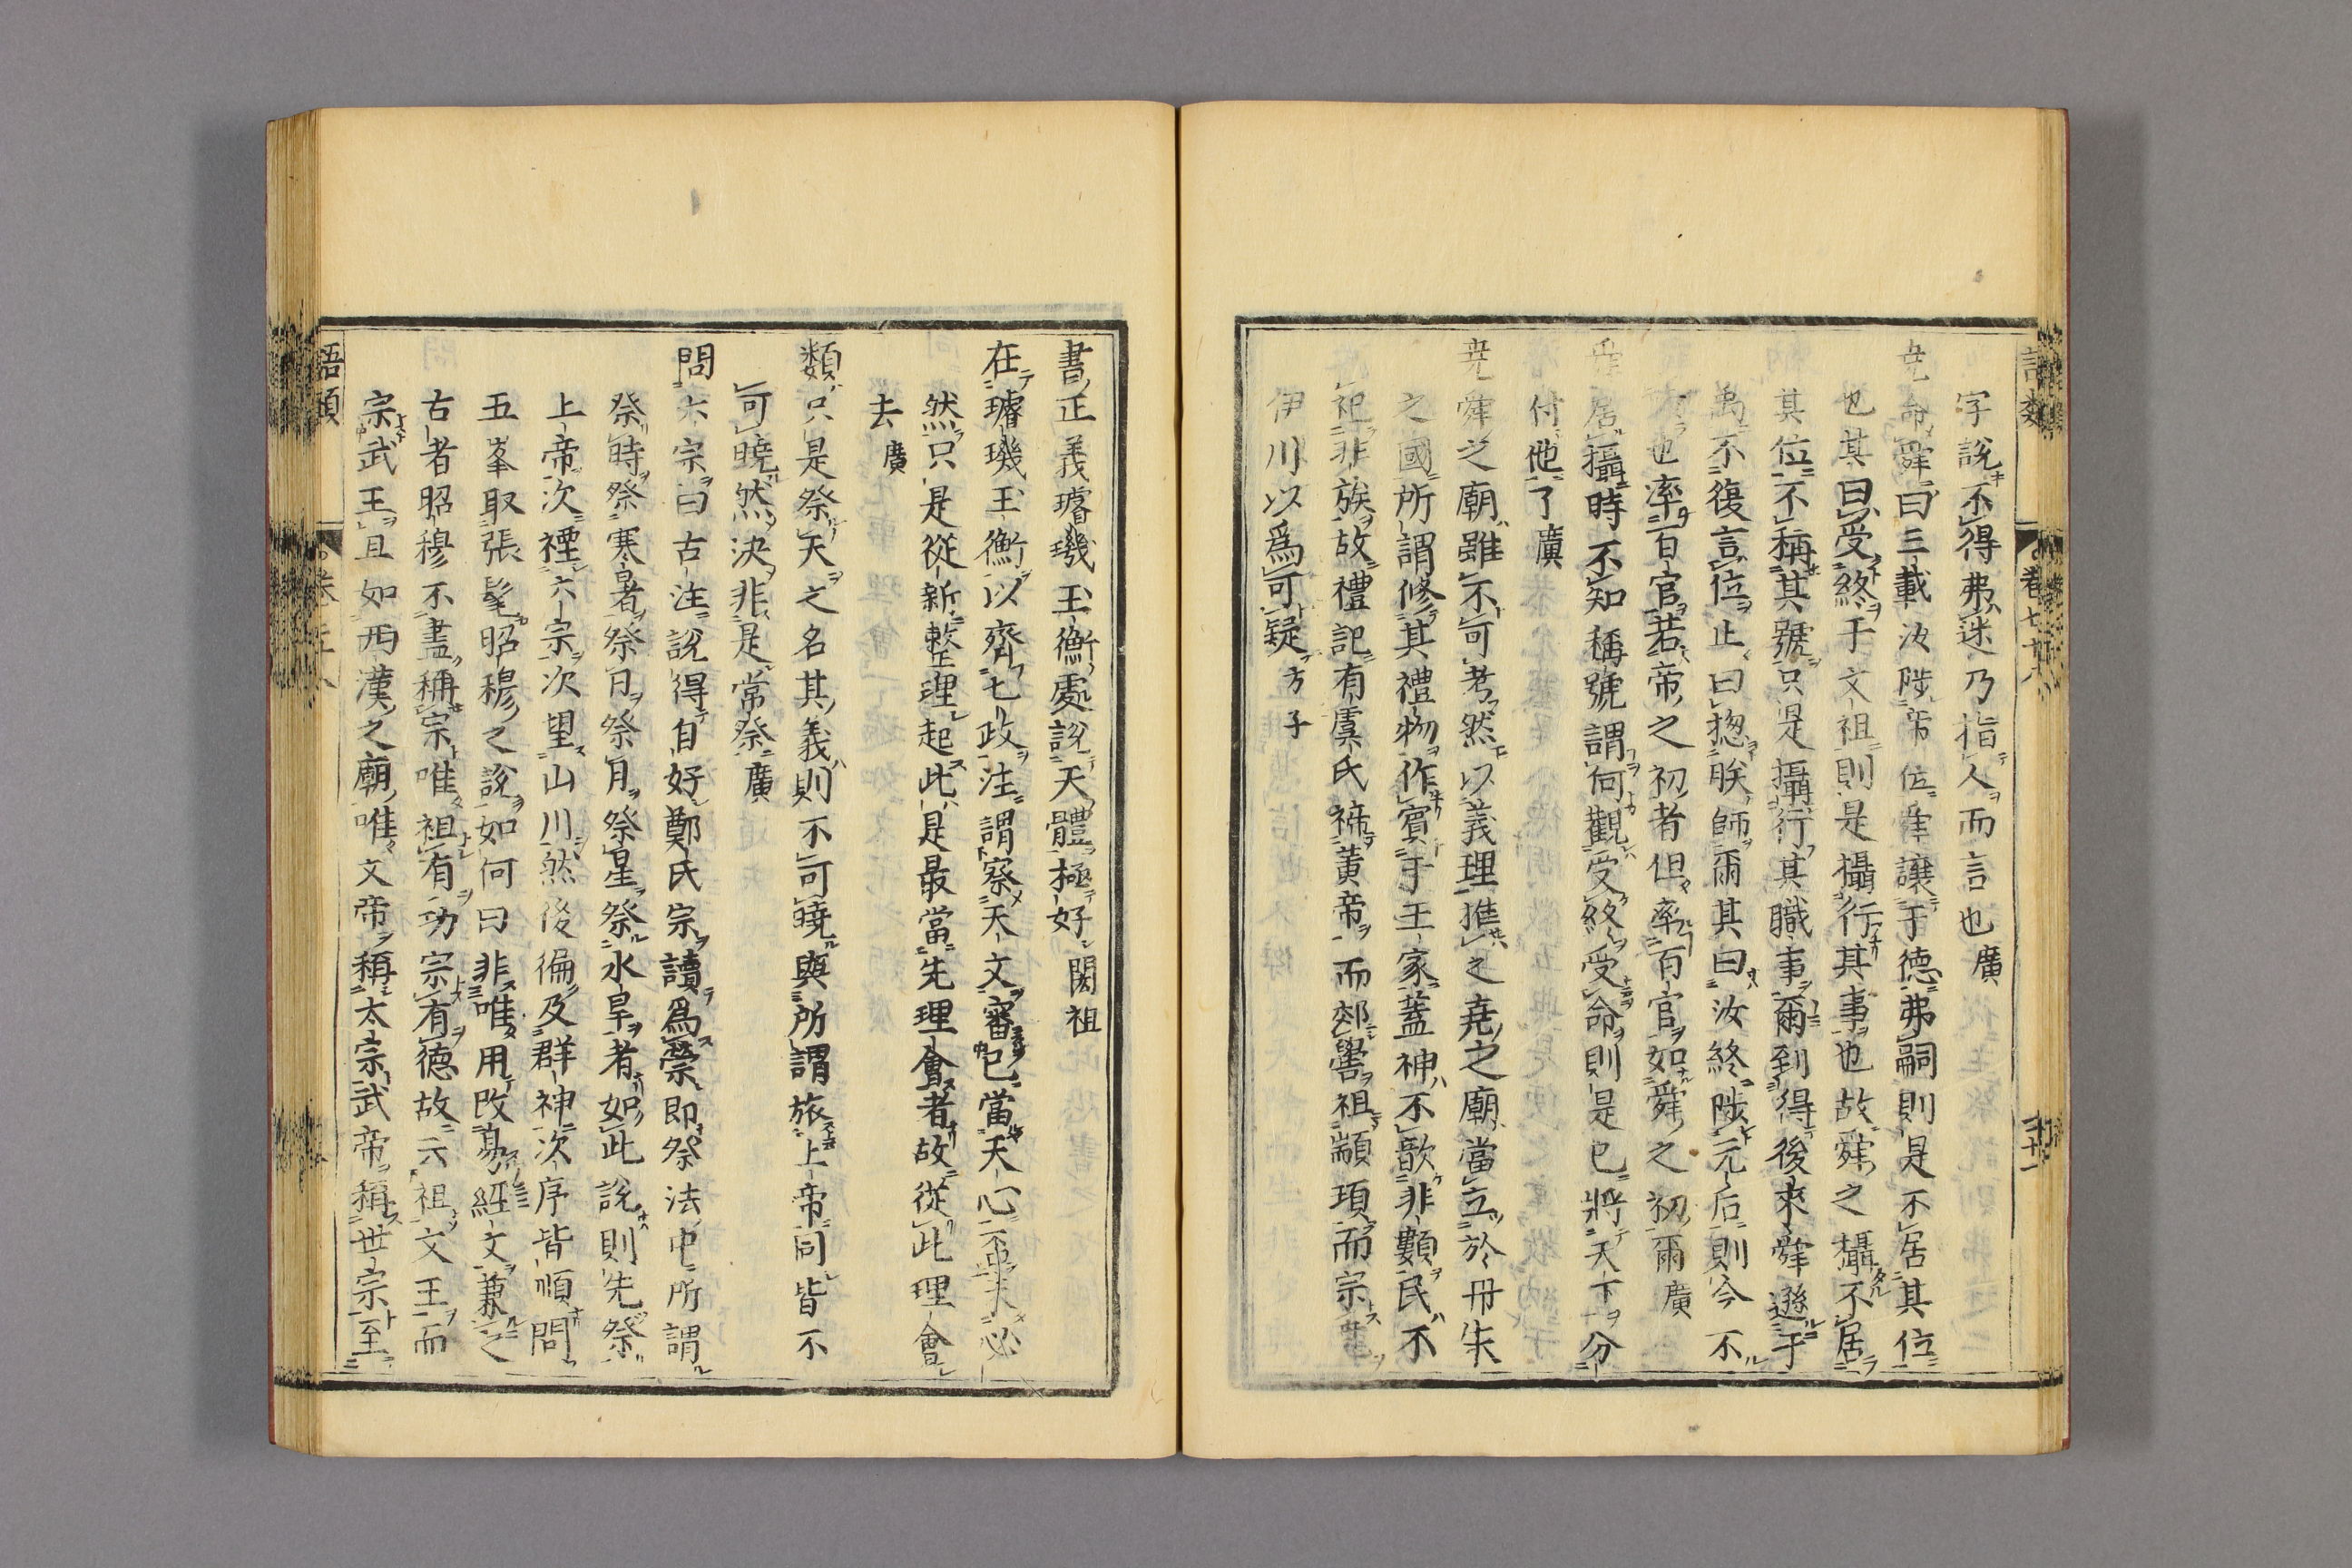 語類
卷七十八
二十一
字說不得弗迷乃指人而言也廣
堯命舜曰三載汝陟帝位舜讓于德弗嗣則是不居其位
也其曰受終于文祖則是攝行其事也故舜之攝不居
其位不稱其號只是攝行其職事爾到得後來舜遜于
禹不復言位止曰揔朕師爾其曰汝終陟元后則今不
陟也率百官若帝之初者但率百官如舜之初爾廣
舜居攝時不知稱號謂何觀受終受命則是已將天下分
付他了廣
堯舜之廟雖不可考然以義理推之堯之廟當立於丹朱
之國所謂修其禮物作賓于王家蓋神不歆非類民不
祀非族故禮記有虞氏禘黃帝而郊嚳祖顓頊而宗堯
伊川以爲可疑方子
書正義璿璣玉衡處說天體極好閎祖
在璿璣玉衡以齊七政注謂察天文審己當天心否未必
然只是從新整理起此是最當先理會者故從此理會
去廣
類只是祭天之名其義則不可曉與所謂旅上帝同皆不
可曉然決非是常祭廣
問六宗曰古注說得自好鄭氏宗讀爲禜即祭法中所謂
祭時祭寒暑祭日祭月祭星祭水旱者如此說則先祭
上帝次禋六宗次望山川然後徧及群神次序皆順問
五峯取張髦昭穆之說如何曰非唯用改易經文兼之
古者昭穆不盡稱宗唯祖有功宗有德故云祖文王而
宗武王且如西漢之廟唯文帝稱太宗武帝稱世宗至
語類
卷七十八